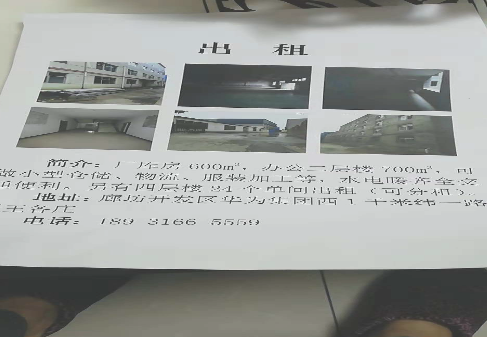 出 租
简介：厂库房 600m²，办公三层楼 700m²，可
做小型仓储、物流、服装加工等，水电暖齐全交
便利。另有四层楼 34 个单间出租（可分租）。
地址：廊坊开发区华为集团西 1 千米纬一路
王各庄
电话：189 3166 5559